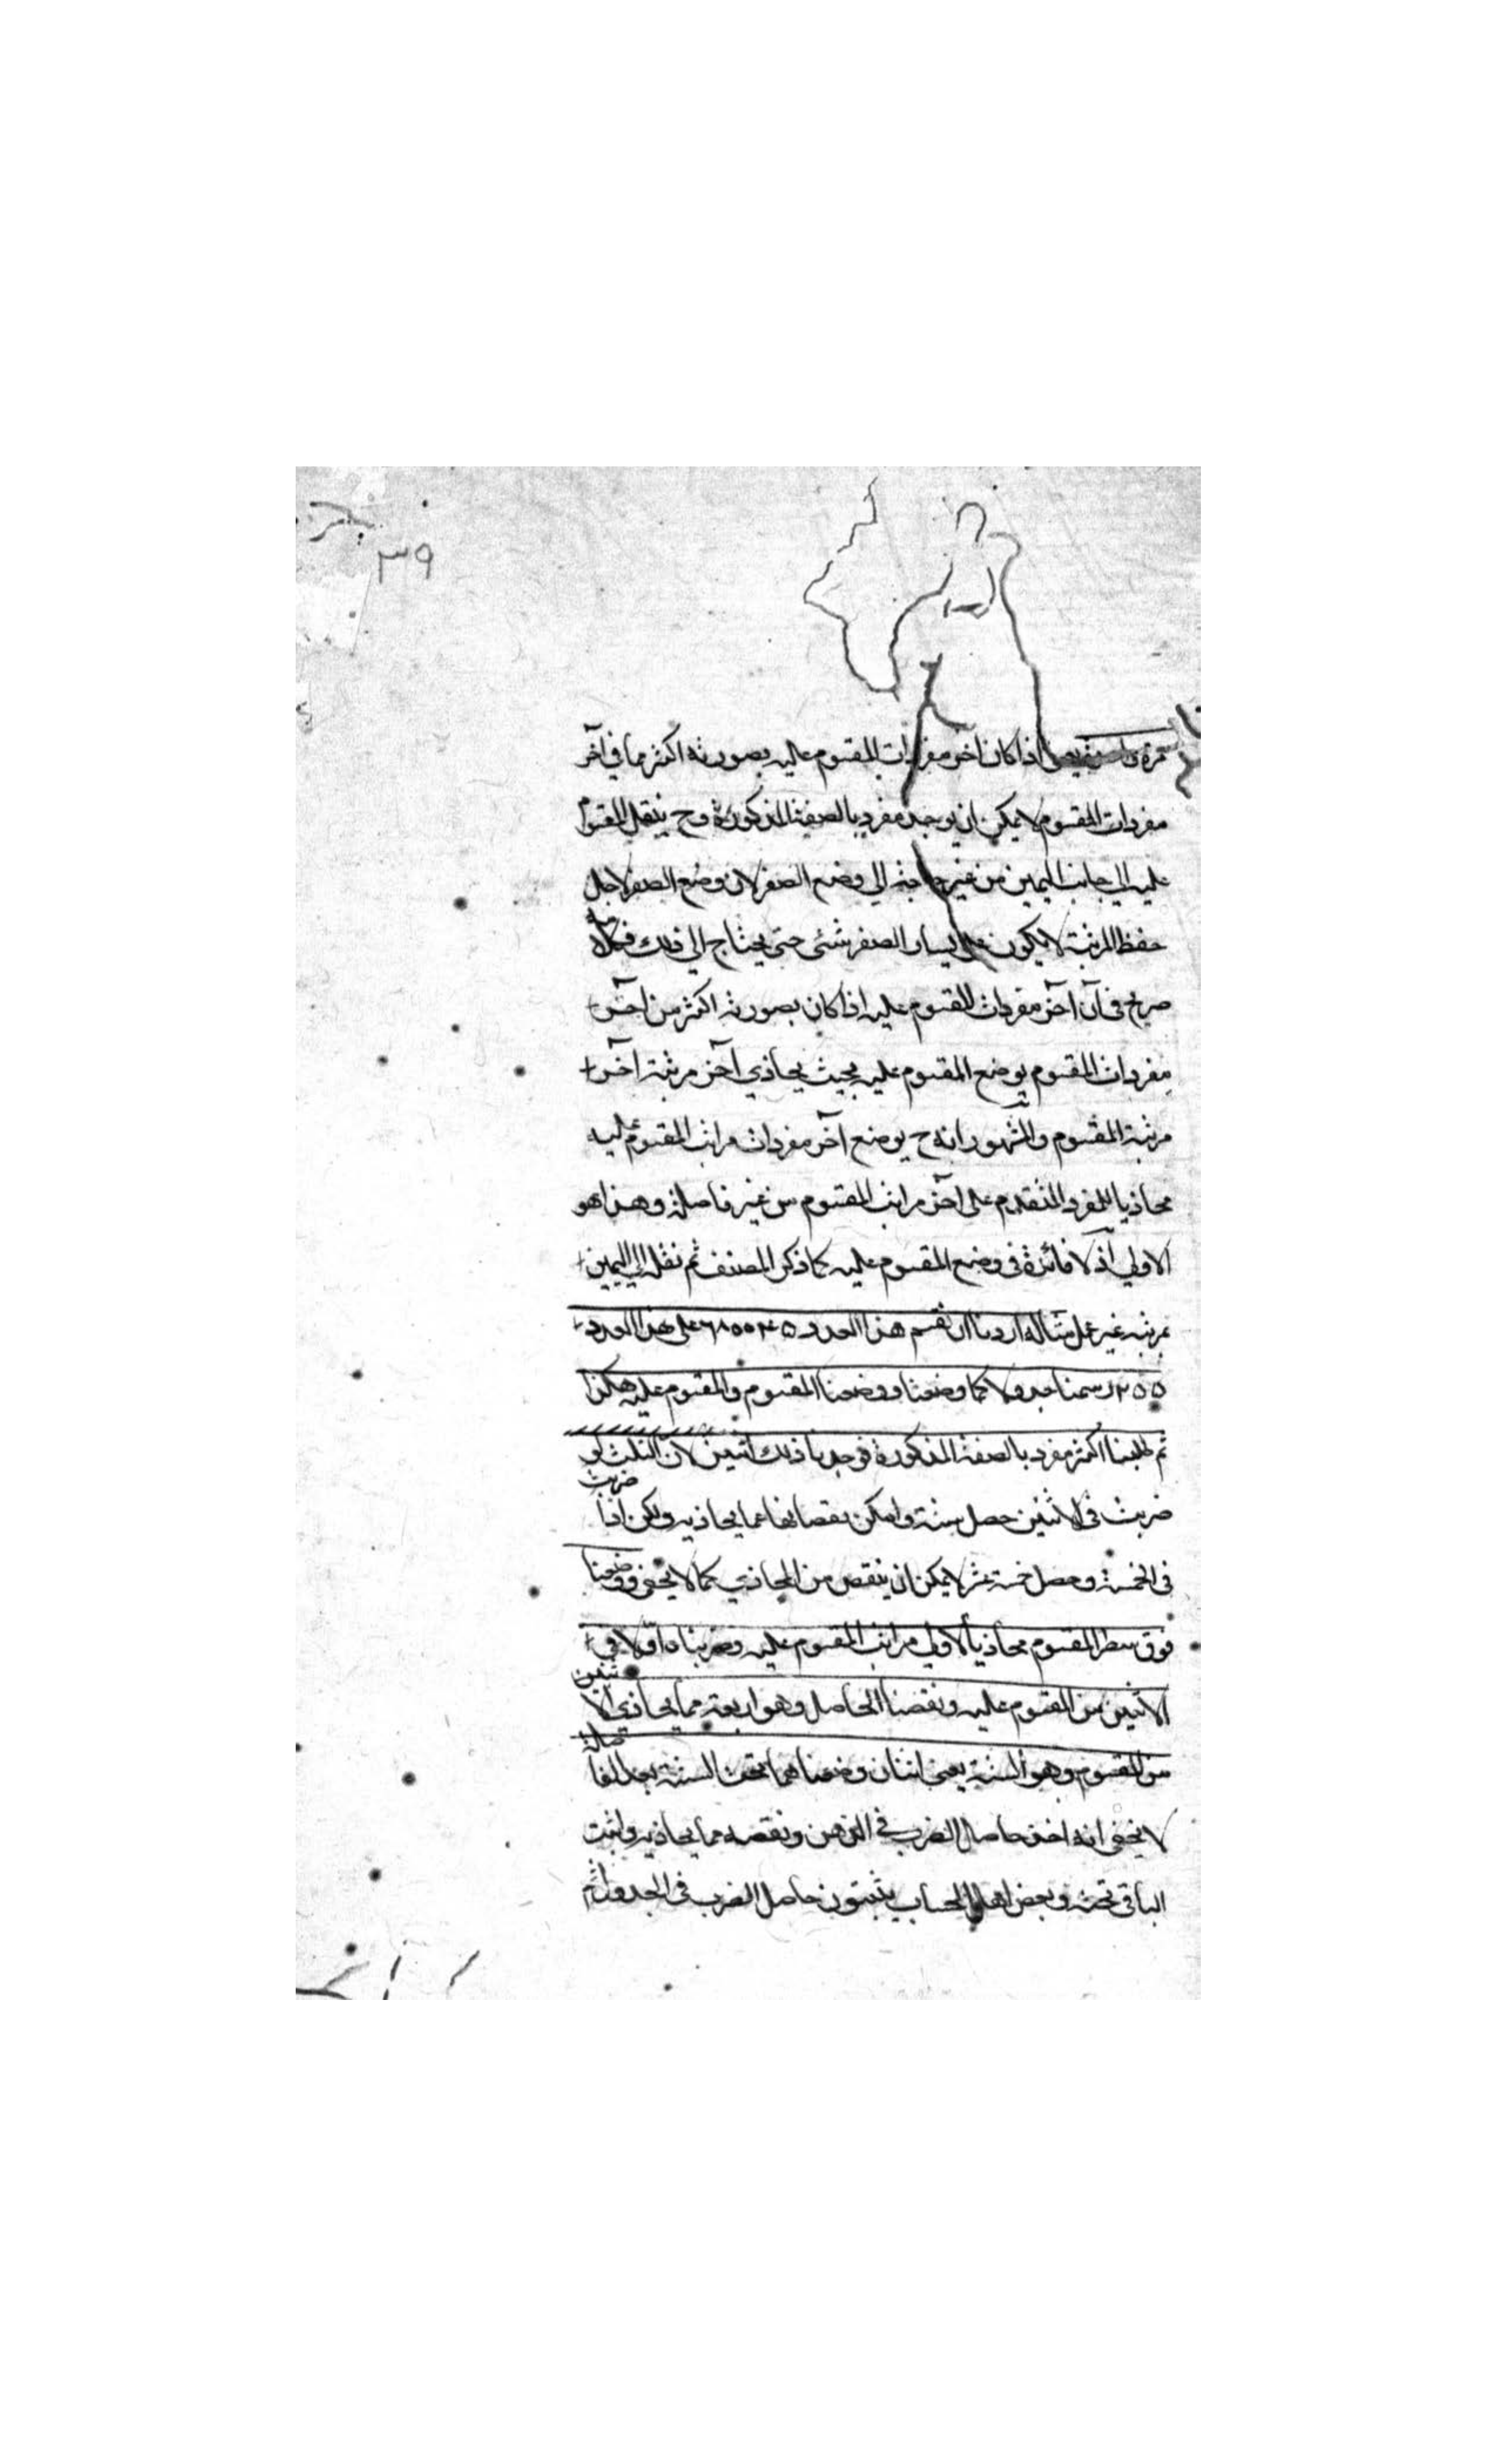 ٣٩
مرة اذا كان آخر مفردات المقسوم عليه بصورته اكثر مما في آخر
مفردات المقسوم لا يمكن ان يوجد مفرد بالصفة المذكورة وح ينقل المقسوم
عليه الى جانب اليمين من غير حاجة الى وضع الصفر لان وضع الصفر لاجل
حفظ المرتبة لا يكون على يسار الصفر شئ حتى يحتاج الى ذلك
صريح في آن آخر مفردات المقسوم عليه اذا كان بصورته اكثر من آخر
مفردات المقسوم يوضع المقسوم عليه بحيث يحاذي آخر مرتبة آخر
مرتبة المقسوم والمشهور انه ح يوضع آخر مفردات مراتب المقسوم عليه
محاذيا للمفرد المتقدم على آخر مراتب المقسوم من غير فاصلة وهذا هو
الاولي اذ لا فائدة في وضع المقسوم عليه كما ذكر المصنف ثم نقله الى اليمين
بمرتبة غير عمل مثاله اردنا ان نقسم هذا العدد على هذا العدد
رسمنا جدولا كما وضعنا ووضعنا المقسوم والمقسوم عليه هكذا
ثم طلبنا اكثر مفرد بالصفة المذكورة فوجدنا ذلك اثنين لان الثلث لو
ضربت في الاثنين حصل ستة وامكن نقصانها عما يحاذيه ولكن اذا ضربت
في الخمسة وحصل خمسة عشر لا يمكن ان ينقص من المحاذي كما لا يخفى ووضعنا
فوق سطر المقسوم محاذيا لاولي مراتب المقسوم عليه وضربناه اولا في
الاثنين من المقسوم عليه ونقصنا الحاصل وهو اربعة مما يحاذي الاثنين
من المقسوم وهو الستة يعني اثنان وضعناهما تحت الستة بعد الفاصلة
لا يخفى انه اخذ حاصل الضرب في الذهن ونقصه مما يحاذيه واثبت
الباقي تحته وبعض اهل الحساب يثبتون حاصل الضرب في الجدول ثم